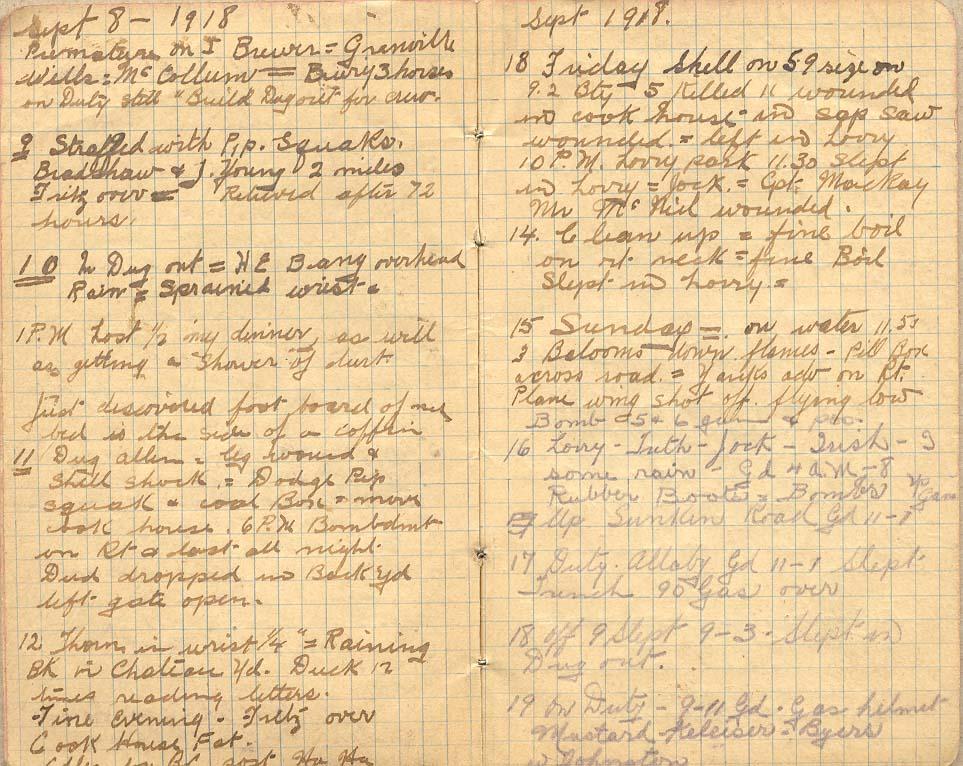 Sept 8 - 1918
Premature on I Brewer = Granville
Wells = McCollum = Bury 3 horses
on Duty still "Build Dugout for crew.
9 Strafed with Pip. Squaks.
Bradshaw & J. Young 2 miles
Fritz over = Relieved after 72
hours.
10 In Dug out = HE Bang overhead
Rain = Sprained wrist =
1 P.M Lost 1/2 my dinner, as well
as getting a Shower of dirt
Just discovered foot board of my
bed is the side of a coffin
11 Dug allen = leg wound &
Shell shock. = Dodge Pip
squak & coal Box = move
cook house. 6 P.M Bombdmt
on Rt & last all night.
Dud dropped in Back Yd
left gate open.
12 Thorn in wrist 1/4" = Raining
BK in Chateau Yd. Duck 12
times reading letters.
Fine Evening - Fritz over
Cook House Fat.
BC post Ha Ha
Sept 1918.
18 Friday Shell on 59 size on
9.2 Bty 5 Killed 11 wounded
in cook house - in Sap Saw
wounded. = left in Lorry
10 P.M. Lorry park 11.30 Slept
in Lorry = Jock. = Cpt. Mackay
Mr McNiel wounded.
14. Clean up = fine boil
on rt neck = fine Boil
Slept in Lorry =
15 Sunday = on water 11.55
3 Baloons down flames - Pill Box
across road. = Yanks adv on Rt.
Plane wing shot off. flying low
Bomb 5 & 6 gun &
16 Lorry - Tuth - Jock - Irish - I
some rain - Gd 4 AM - 8
Rubber Boots = Bombs up Gas
Up Sunken Road Gd 11-1
17 Duty. Allaby Gd 11-1 Slept
Trench 90 Gas over
18 off 9 Slept 9-3 - Slept in
Dug out.
19 On Duty - 9-11 Gd. Gas helmet
Mustard - Keleiser - Byers
W. Johnston